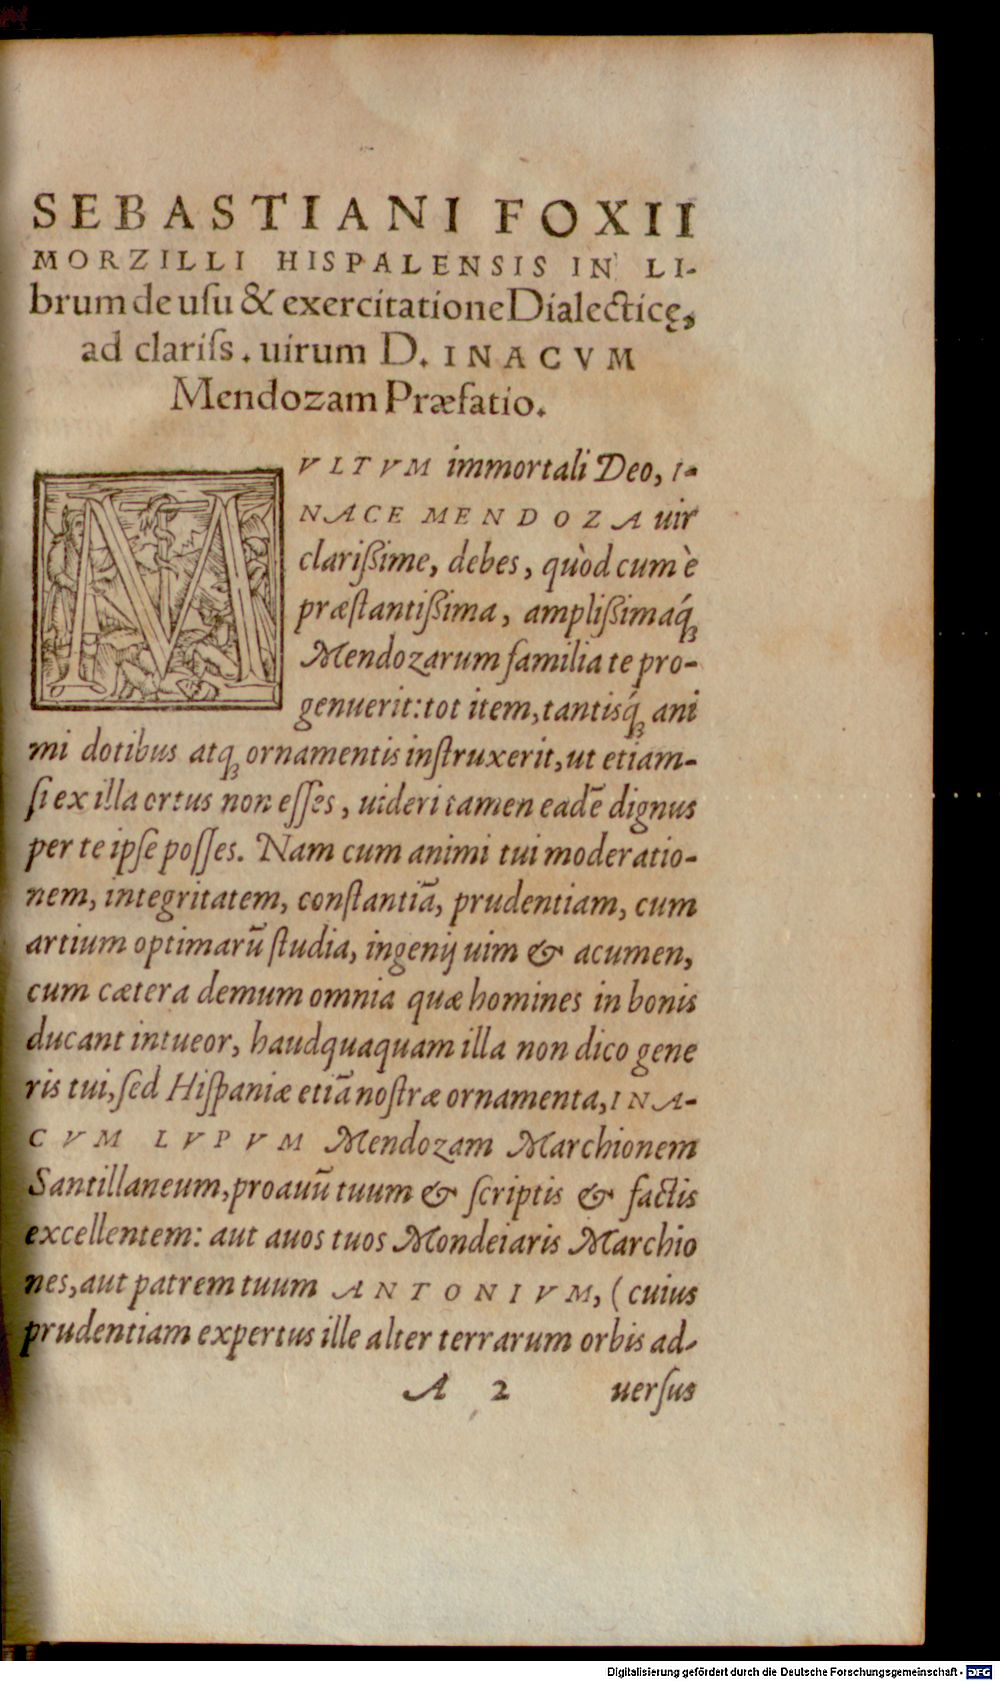 SEBASTIANI FOXII
MORZILLI HISPALENSIS IN LI-
brum de uſu & exercitatione Dialecticę,
ad clariſs. uirum D. INACVM
Mendozam Præfatio.
MVLTVM immortali Deo, I-
NACE MENDOZA uir
clarißime, debes, quòd cum è
præſtantißima, amplißimaq́ꝫ
Mendozarum familia te pro-
genuerit: tot item, tantisq́ꝫ ani
mi dotibus atqꝫ ornamentis inſtruxerit, ut etiam-
ſi ex illa ortus non eſſes, uideri tamen eadē dignus
per te ipſe poſſes. Nam cum animi tui moderatio-
nem, integritatem, conſtantiā, prudentiam, cum
artium optimarū ſtudia, ingenij uim & acumen,
cum cætera demum omnia quæ homines in bonis
ducant intueor, haudquaquam illa non dico gene
ris tui, ſed Hiſpaniæ etiā noſtræ ornamenta, INA-
CVM LVPVM Mendozam Marchionem
Santillaneum, proauū tuum & ſcriptis & factis
excellentem: aut auos tuos Mondeiaris Marchio
nes, aut patrem tuum ANTONIVM, (cuius
prudentiam expertus ille alter terrarum orbis ad-
A 2 uerſus
Digitalisierung gefördert durch die Deutsche Forschungsgemeinschaft - DFG